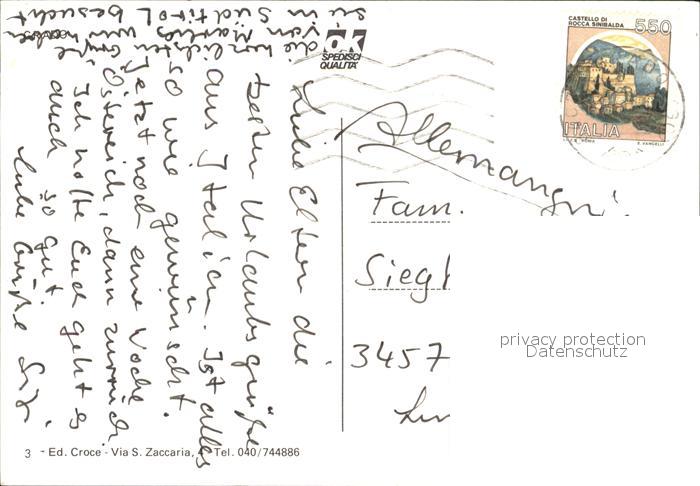 CASTELLO DI
ROCCA SINIBALDA
550
ITALIA
E. VANGELLI
OK
SPEDISCI
QUALITÀ
Allemangni
Fam.
Siegl
3457
privacy protection
Datenschutz
Liebe Eltern die
besten Urlaubsgrüße
aus Italien. Ist alles
so wie gewünscht.
Jetzt noch eine Woche
Östereich, dann zurück
Ich hoffe Euch geht es
auch so gut.
Liebe Grüße
die herzlichsten Grüße
von
sie in Südtirol besucht
3 - Ed. Croce - Via S. Zaccaria, 4 Tel. 040/744886